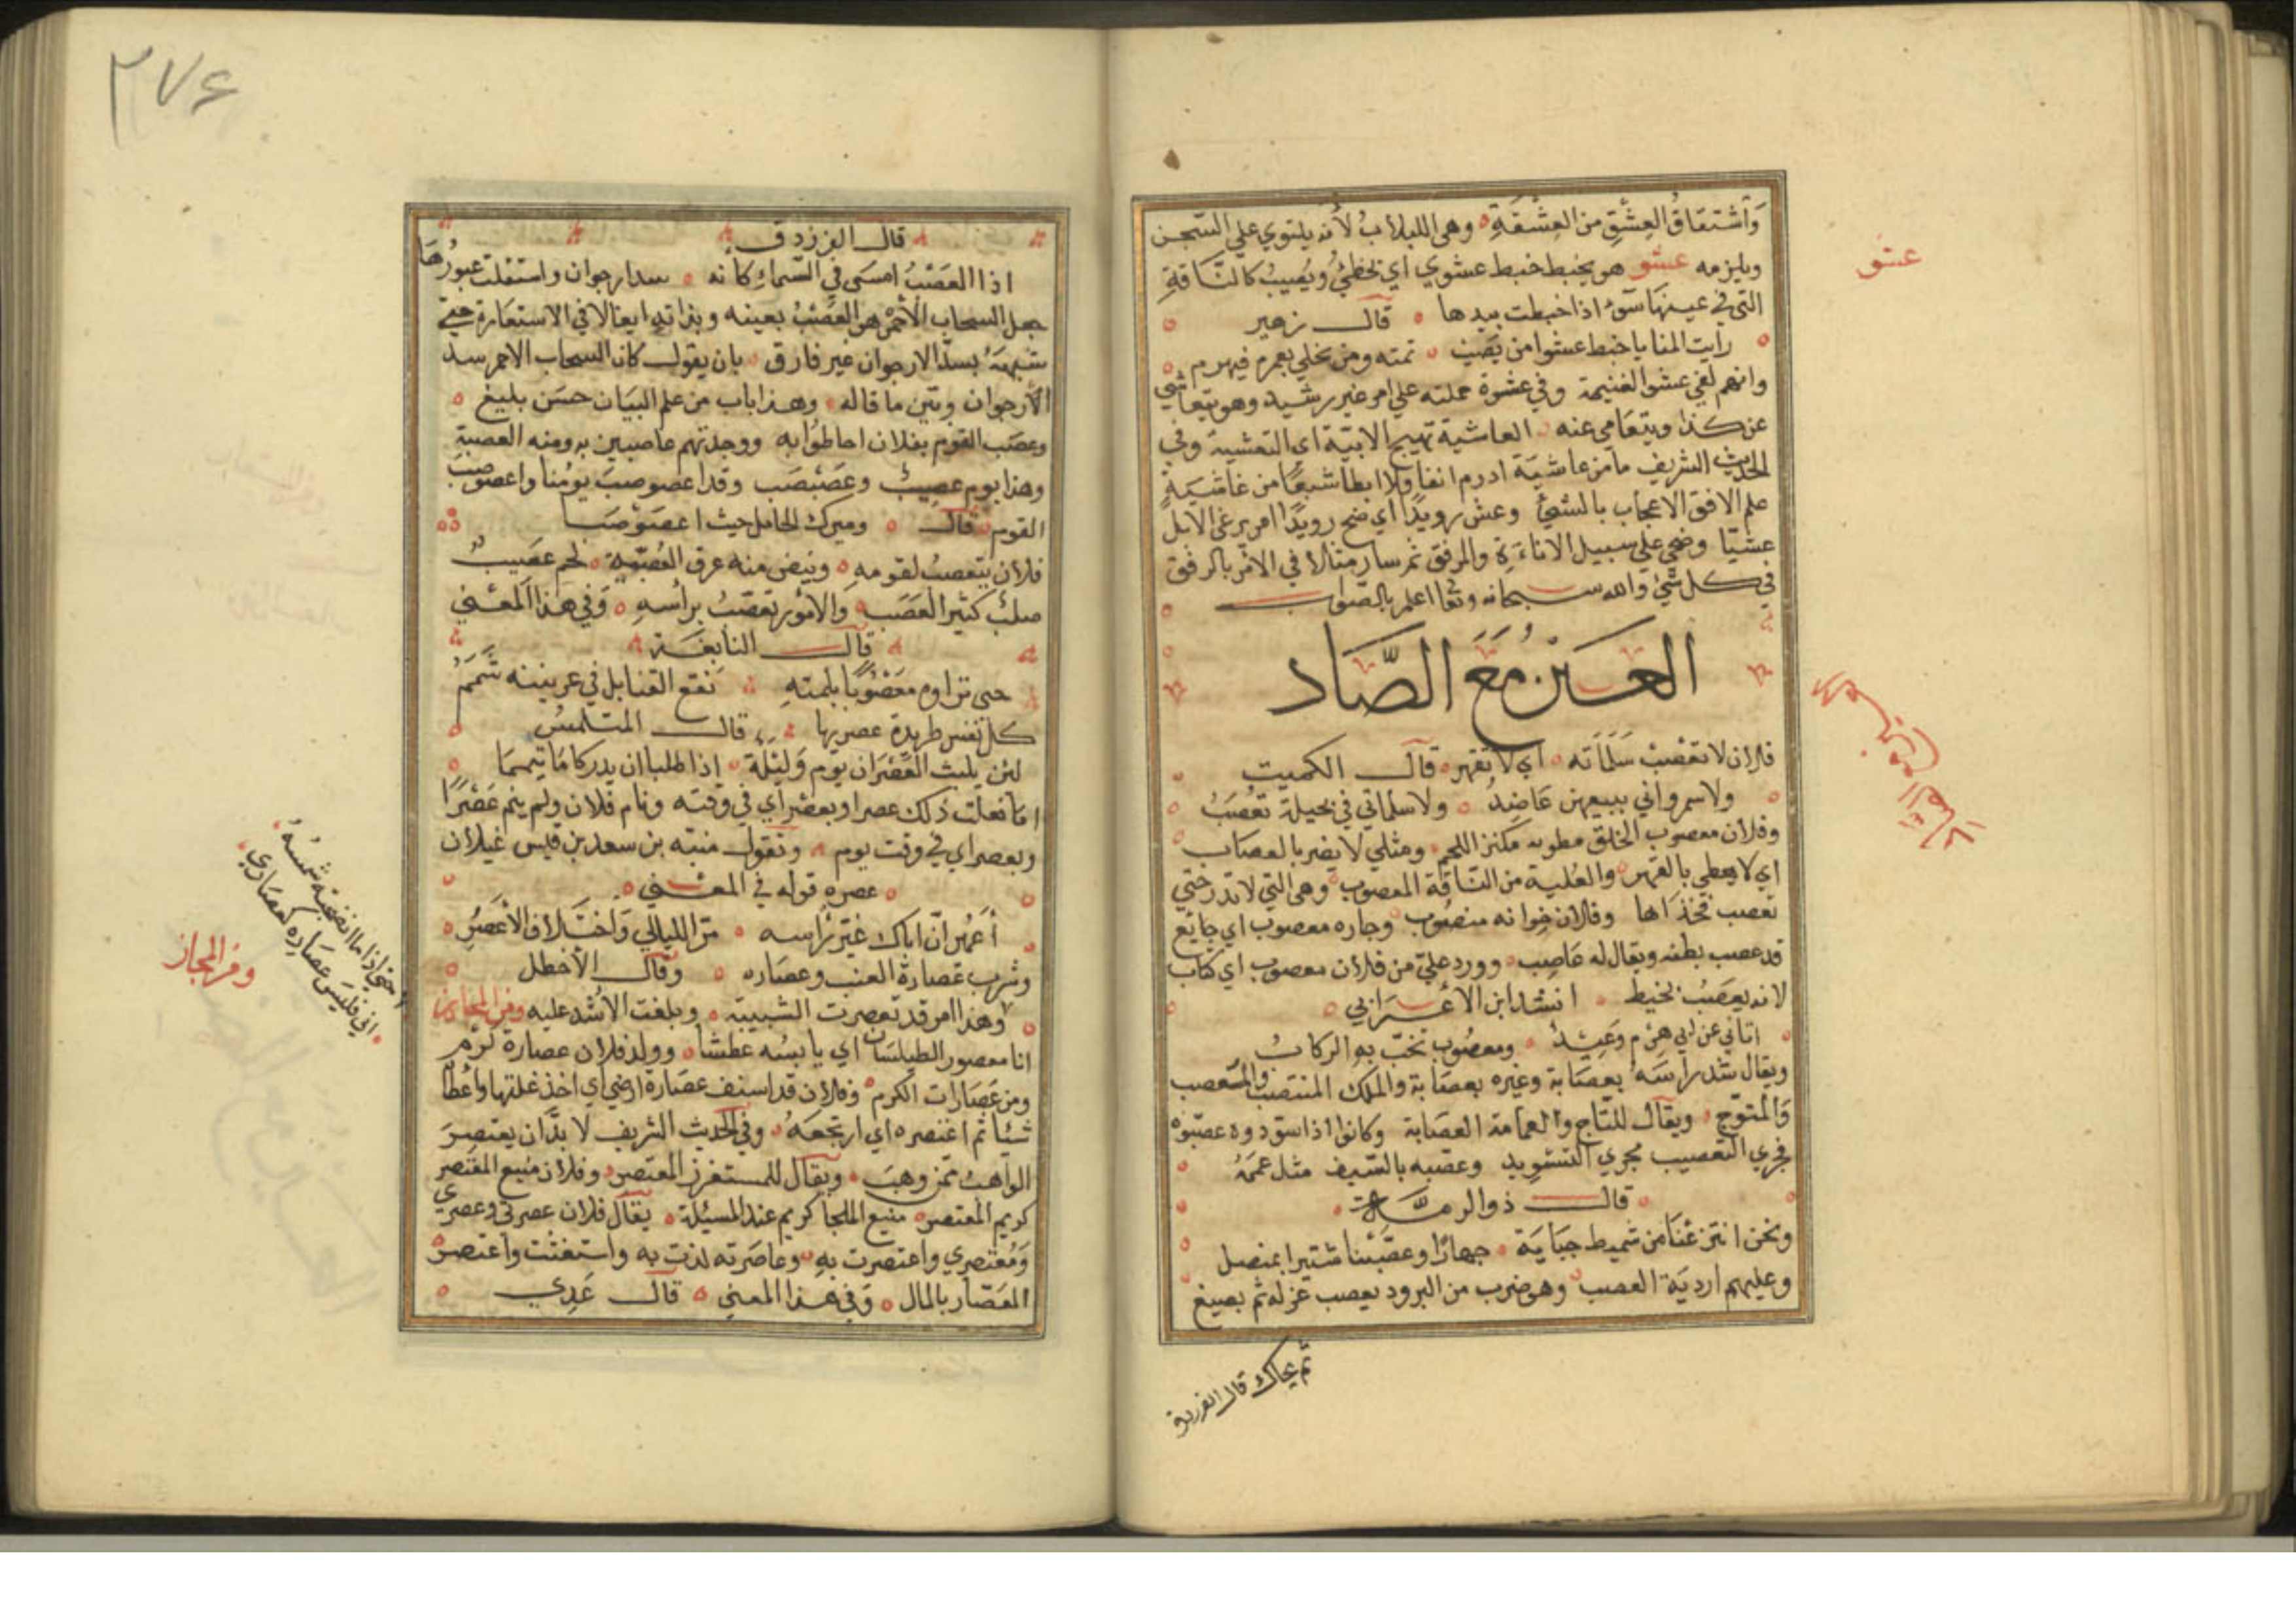 وَاشتقاقُ العِشْقِ من العِشْقَةِ وهي اللبلابُ لأنه يلتوي علي الشجر
ويلزمه عشو هو يخبط خبط عشوي اي يخطئُ ويُصيبُ كالنَّاقةِ
التي في عينها سَوءٌ اذا خبطت بيدها قال زهير
رايت المنايا خبط عشوا من تُصِب تمته ومن تخطي يعمر فيهرم
وانهم لفي عشو الغنيمة وفي عشوة حملته علي امر غير رشيد وهو يتعاشي
عن كذا ويتعامي عنه العاشية تهيج الابيّة اي التعشية وفي
الحديث الشريف ما من عاشيَة ادوم انقا ولا ابطا شبعًا من عاشيةِ
علم الافق الاعجاب بالشئ وعش رويدًا اي ضح رويدًا امر برعي الابل
عشيّا وضحي علي سبيل الاناءَةِ والرفق ثم سار مثالا في الامر بالرفق
في كل شئ والله سبحانه وتعا اعلم بالصّواب
العَين مَعَ الصَّاد
فلان لا تعصب سَلَمَاته اي لا تقهر قال الكميت
ولا سمرواني ببيعهن عاضِدٌ ولا سلماتي في بجيلة تعُصَبُ
وفلان معصوب الخلق مطويه مكنز اللحم ومثلي لا يضر بالعصاب
اي لا يعطي بالقهر والعُلبة من النّاقة المعصوب وهي التي لا تدر حتي
تعصب فخذاها وفلان خِوانه منصُوب وجاره معصوب اي جايع
قد عصب بطنه ويقال له عَاصِب وورد عليّ من فلان معصوب اي كتاب
لانه يعصَبُ بخيط انشد ابن الاعرابي
اتاني عن ابي هرَم وَعِيدٌ ومعصُوب تخبّ به الركابُ
ويقال شد راسَه بعصَابة وغيره بعصَابة والملك المنتصب والمتعصب
وَالمتوّج ويقال للتّاج والعمامة العصَابة وكانوا اذا سوّدوه عصّبوه
فجري التعصيب مجري التسويد وعصبه بالسّيف مثل عممَهُ
قال ذو الرمّة
ونحن انتزعْنَا من شميط جبَايَة جهارًا وعصّبْنا شتيرا بمنصل
وعليهم ارديَة العصب وهو ضرب من البرود يعصب غزله ثم يصبغ
ثم يحاك قال الفرزدق
عشو
العين مع الصاد
٢٧٤
قال الفرزدق
اذا العَصْبُ امسَي في السّماءِ كانه سدا ارجوان واستقلت عبورُهَا
جعل السحاب الأحمر هو العَصْبُ بعينه وبذاته ايغالا في الاستعَارة حتي
شبهَهُ بسدّا الارجوان غير فارق بان يقول كان السحاب الاحمر سد
الأرجوان وبيّن ما قاله وهذا باب من علم البيَان حسَن بليغ
وعصَب القوم بفلان احاطُوا به ووجدتهم عاصبين به ومنه العصبة
وهذا يوم عصِيبٌ وعَصَبْصَب وقد اعصوصبَ يومُنا واعصوصَبَ
القوم قال ومبرك الحامل حيث اعصَوْصَبَا
فلان يتعصبُ لقومه وينبض منه عرق العُصبّية لحم عصَيبٌ
صلبٌ كثير العَصَب والامُور تعصّبُ برأسهِ وَفي هذا المعني
قال النابغة
حتي تراوم مَعَصُوبًا بلمتهِ نقع القنابل في عرنينه شَمَمُ
كل نفس طريدة عصريها قال المتلمسُ
لئن يلبث العَصْرَان يَوم وَليْلَة اذا طلبا ان يدركا مَا تيممَا
مَا فعلت ذلك عصرا وبعصْر اي في وقته ونام فلان ولم ينم عَصْرًا
وبعصر اي في وقت يوم وتقول منبّه بن سعد بن قيس غيلان
عصره قوله في المعني
أعَمُير انّ اباك غيّر رأسه مرّ الليالي وَاختلاف الأعصُرِ
وشرب عصارة العنب وعصَاره وقال الأخطل
وهذا امر قد تعصرت الشبيبة وبلغت الأشد عليه ومن المجاز
انا معصور اللسان اي يابسُه عطشا وولد فلان عصارة كرم
ومن عصَارات الكرم وفلان قد استنف عصَارة ارضي اي اخذ غلتها واعطا
شيئا ثم اعتصره اي ارتجعَهُ وفي الحديث الشريف لا بدّ ان يعتصِرَ
الواهبُ ممّن وهبَ ويقال للمستغزر المعتصر وفلان منيع المعتَصر
كريم المعتصر منيع الملجا كريم عند المسيُلة يقال فلان عصرتي وعصري
وَمُعتصري واعتصرت به وعاصَرته لذت به واستغثت واعتصر
العَصّار بالمال وَفي هذا المعني قال عَدِي
حتي اذا ما انضجته شمسُهُ
اني فليسَ عصَاره كعصَاري
ومن المجاز